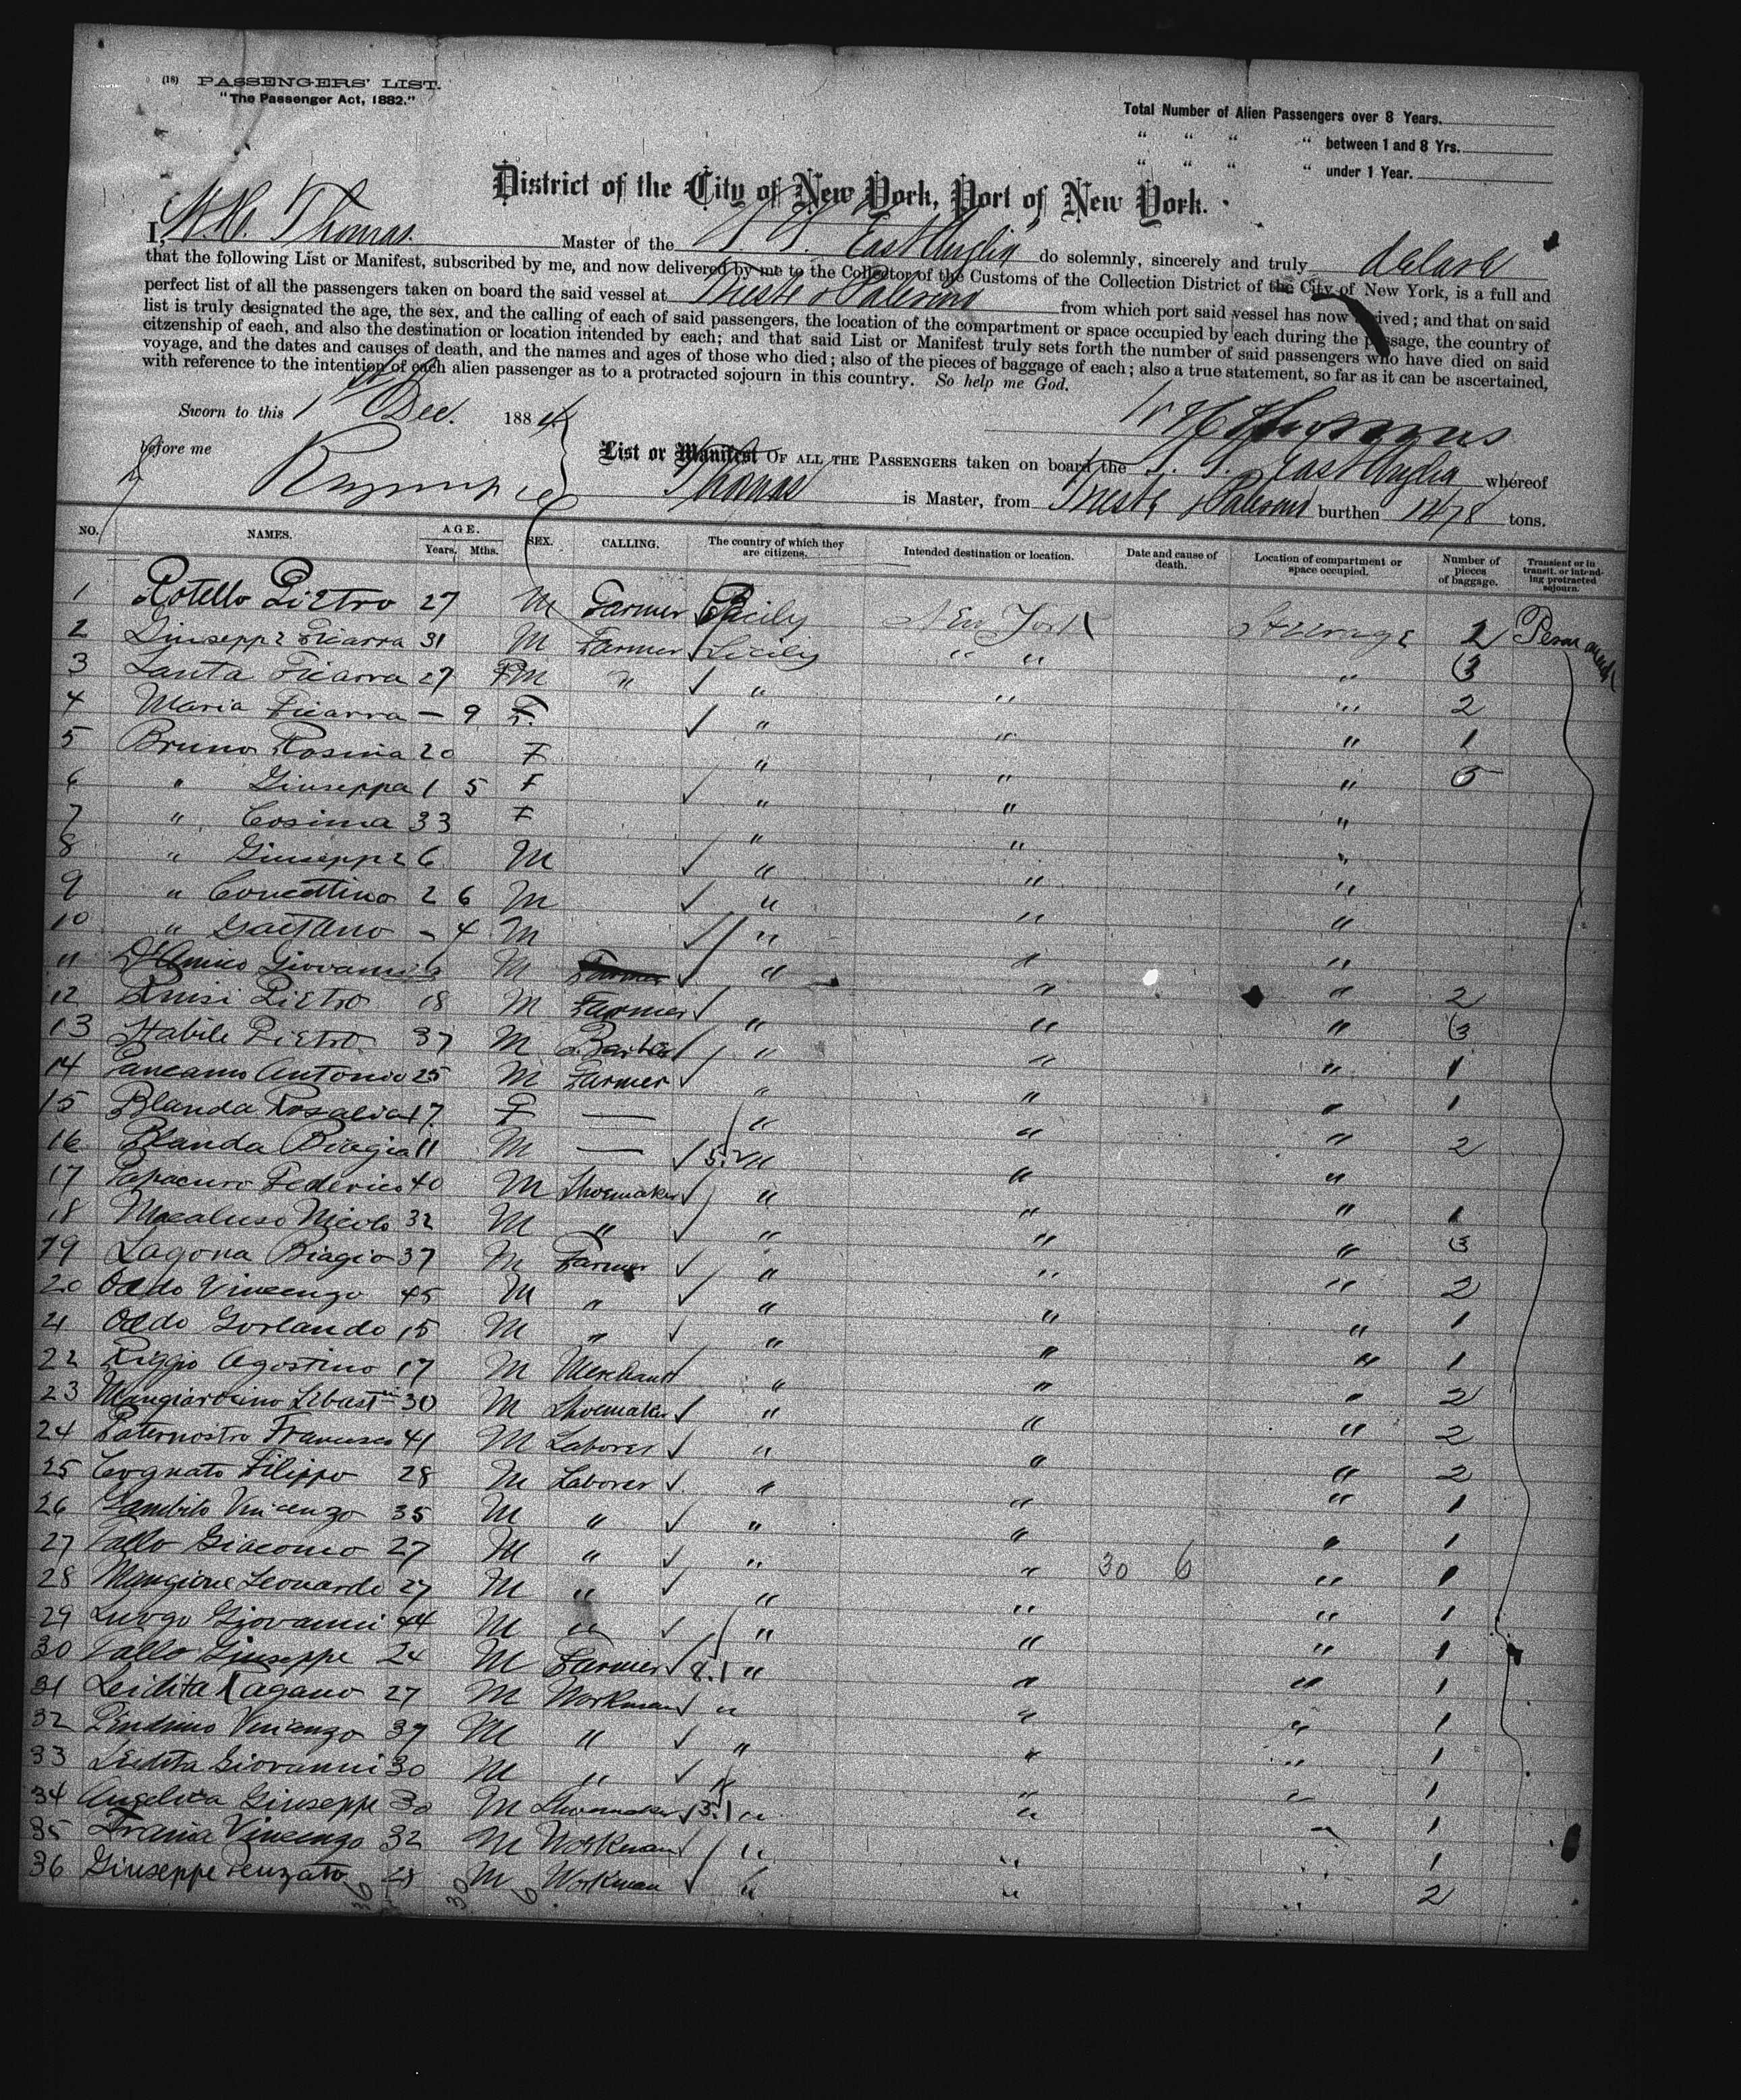 (18) PASSENGERS' LIST.
"The Passenger Act, 1882."
Total Number of Alien Passengers over 8 Years.
" " " " between 1 and 8 Yrs.
" " " " under 1 Year.
District of the City of New York, Port of New York.
I, Thomas Master of the S. S. East Anglia do solemnly, sincerely and truly declare
that the following List or Manifest, subscribed by me, and now delivered by me to the Collector of the Customs of the Collection District of the City of New York, is a full and
perfect list of all the passengers taken on board the said vessel at Trieste & Palermo from which port said vessel has now arrived; and that on said
list is truly designated the age, the sex, and the calling of each of said passengers, the location of the compartment or space occupied by each during the passage, the country of
citzenship of each, and also the destination or location intended by each; and that said List or Manifest truly sets forth the number of said passengers who have died on said
voyage, and the dates and causes of death, and the names and ages of those who died; also of the pieces of baggage of each; also a true statement, so far as it can be ascertained,
with reference to the intention of each alien passenger as to a protracted sojourn in this country. So help me God.
Sworn to this 1 Dec. 1884
before me
List or Manifest OF ALL THE PASSENGERS taken on board the S. S. East Anglia whereof
Thomas is Master, from Trieste & Palermo burthen 1478 tons.
NO. NAMES. AGE. Years. Mths. SEX. CALLING. The country of which they are citizens. Intended destination or location. Date and cause of death. Location of compartment or space occupied. Number of pieces of baggage. Transient or in transit, or intending protracted sojourn.
1 Rotello Pietro 27 M Farmer Sicily New York Steerage 2 Permanent
2 Giuseppe Ficarra 31 M Farmer Sicily " " " 3
3 Santa Ficarra 27 " " " " 2
4 Maria Ficarra — 9 F. " " " 1
5 Bruno Rosina 20 F " " " 5
6 " Giuseppa 1 5 F " " "
7 " Cosima 33 F " " "
8 " Giuseppe 6 M " " "
9 " Concettino 2 6 M " " "
10 " Gaetano - 4 M " " "
11 D'Amico Giovanni M Farmer " " " 2
12 Pietro 18 M Farmer " " " 3
13 Stabile Pietro 37 M Barber " " " 1
14 Antonio 25 M Farmer " " " 1
15 Blanda Rosalia 17 F — " " " 2
16 Blanda Biagia 11 M — 5.2 " " "
17 Papacuro Federico 40 M Shoemaker " " " 1
18 Macaluso Nicolo 32 M " " " " 3
19 Lagona Biagio 37 M Farmer " " " 2
20 Oddo Vincenzo 45 M " " " " 1
21 Oddo Gorlando 15 M " " " " 1
22 Riggio Agostino 17 M Merchant " " " 2
23 Mangiardino Sebast 30 M Shoemaker " " " 2
24 Paternostro Francesco 41 M Laborer " " " 2
25 Cognato Filippo 28 M Laborer " " " 1
26 Gambito Vincenzo 35 M " " " " 1
27 Vallo Giacomo 27 M " " " 30 6 " 1
28 Mangione Leonardo 27 M " " " " 1
29 Giovanni 44 M " " " " 1
30 Vallo Giuseppe 24 M Farmer 8.1 " " " 1
31 Leidita Pagano 27 M Workman " " " 1
32 Vincenzo 37 M " " " " 1
33 Leidita Giovanni 30 M " " " " 1
34 Giuseppe 30 M Shoemaker 3.1 " " " 1
35 Vincenzo 32 M Workman " " " 1
36 Giuseppe Penzato 28 M Workman " " " 2
36 30 6